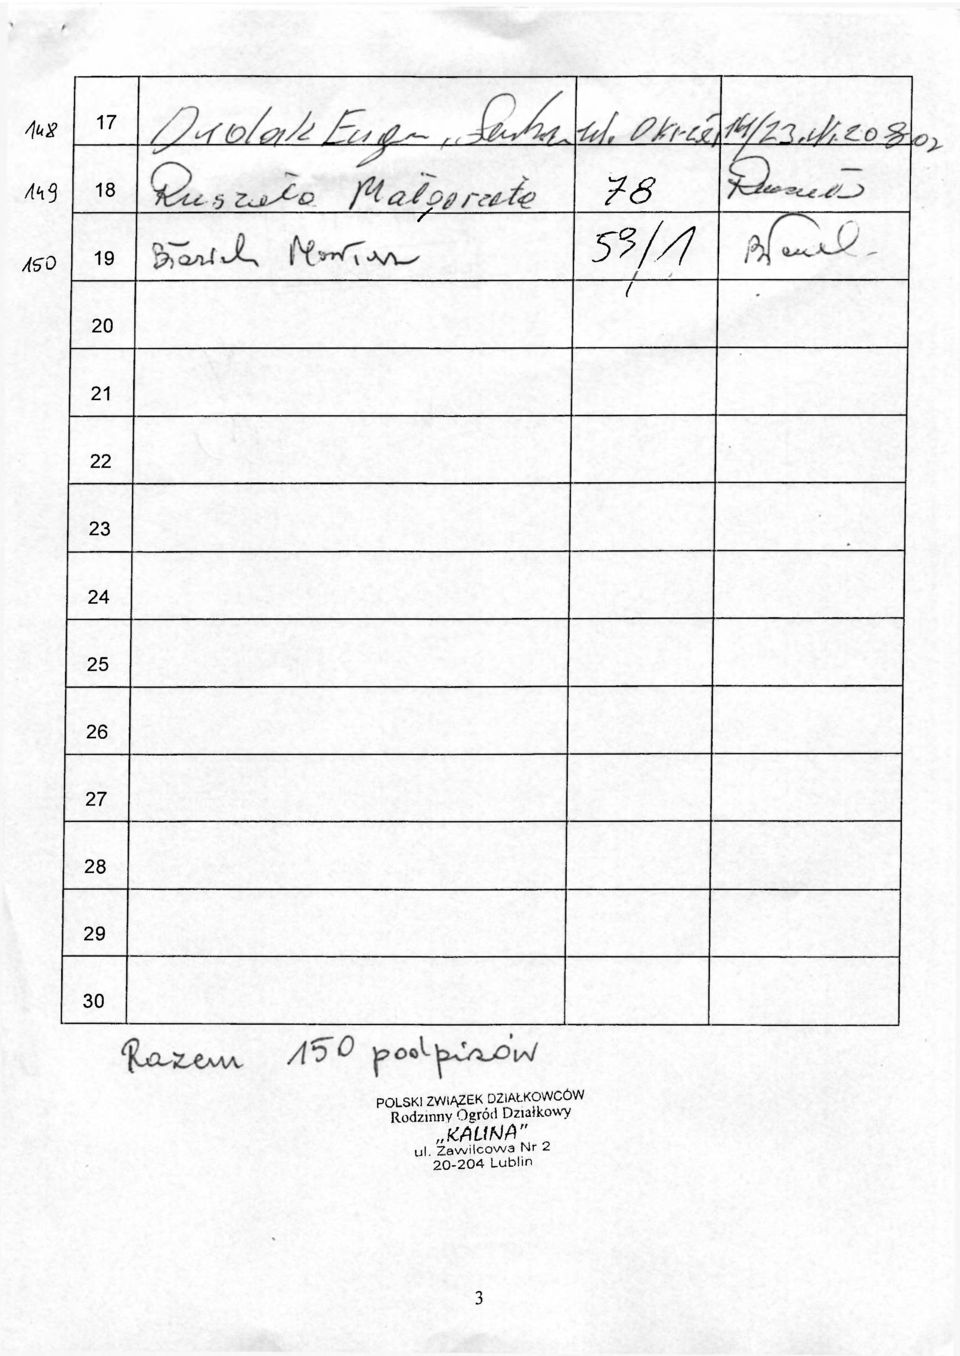 148 17 Dudak Eugen ul. 14/23
149 18 Ruszała Małgorzata 78
150 19 59/1
20
21
22
23
24
25
26
27
28
29
30
Razem 150 podpisów
POLSKI ZWIĄZEK DZIAŁKOWCÓW
Rodzinny Ogród Działkowy
„KALINA"
ul. Zawilcowa Nr 2
20-204 Lublin
3